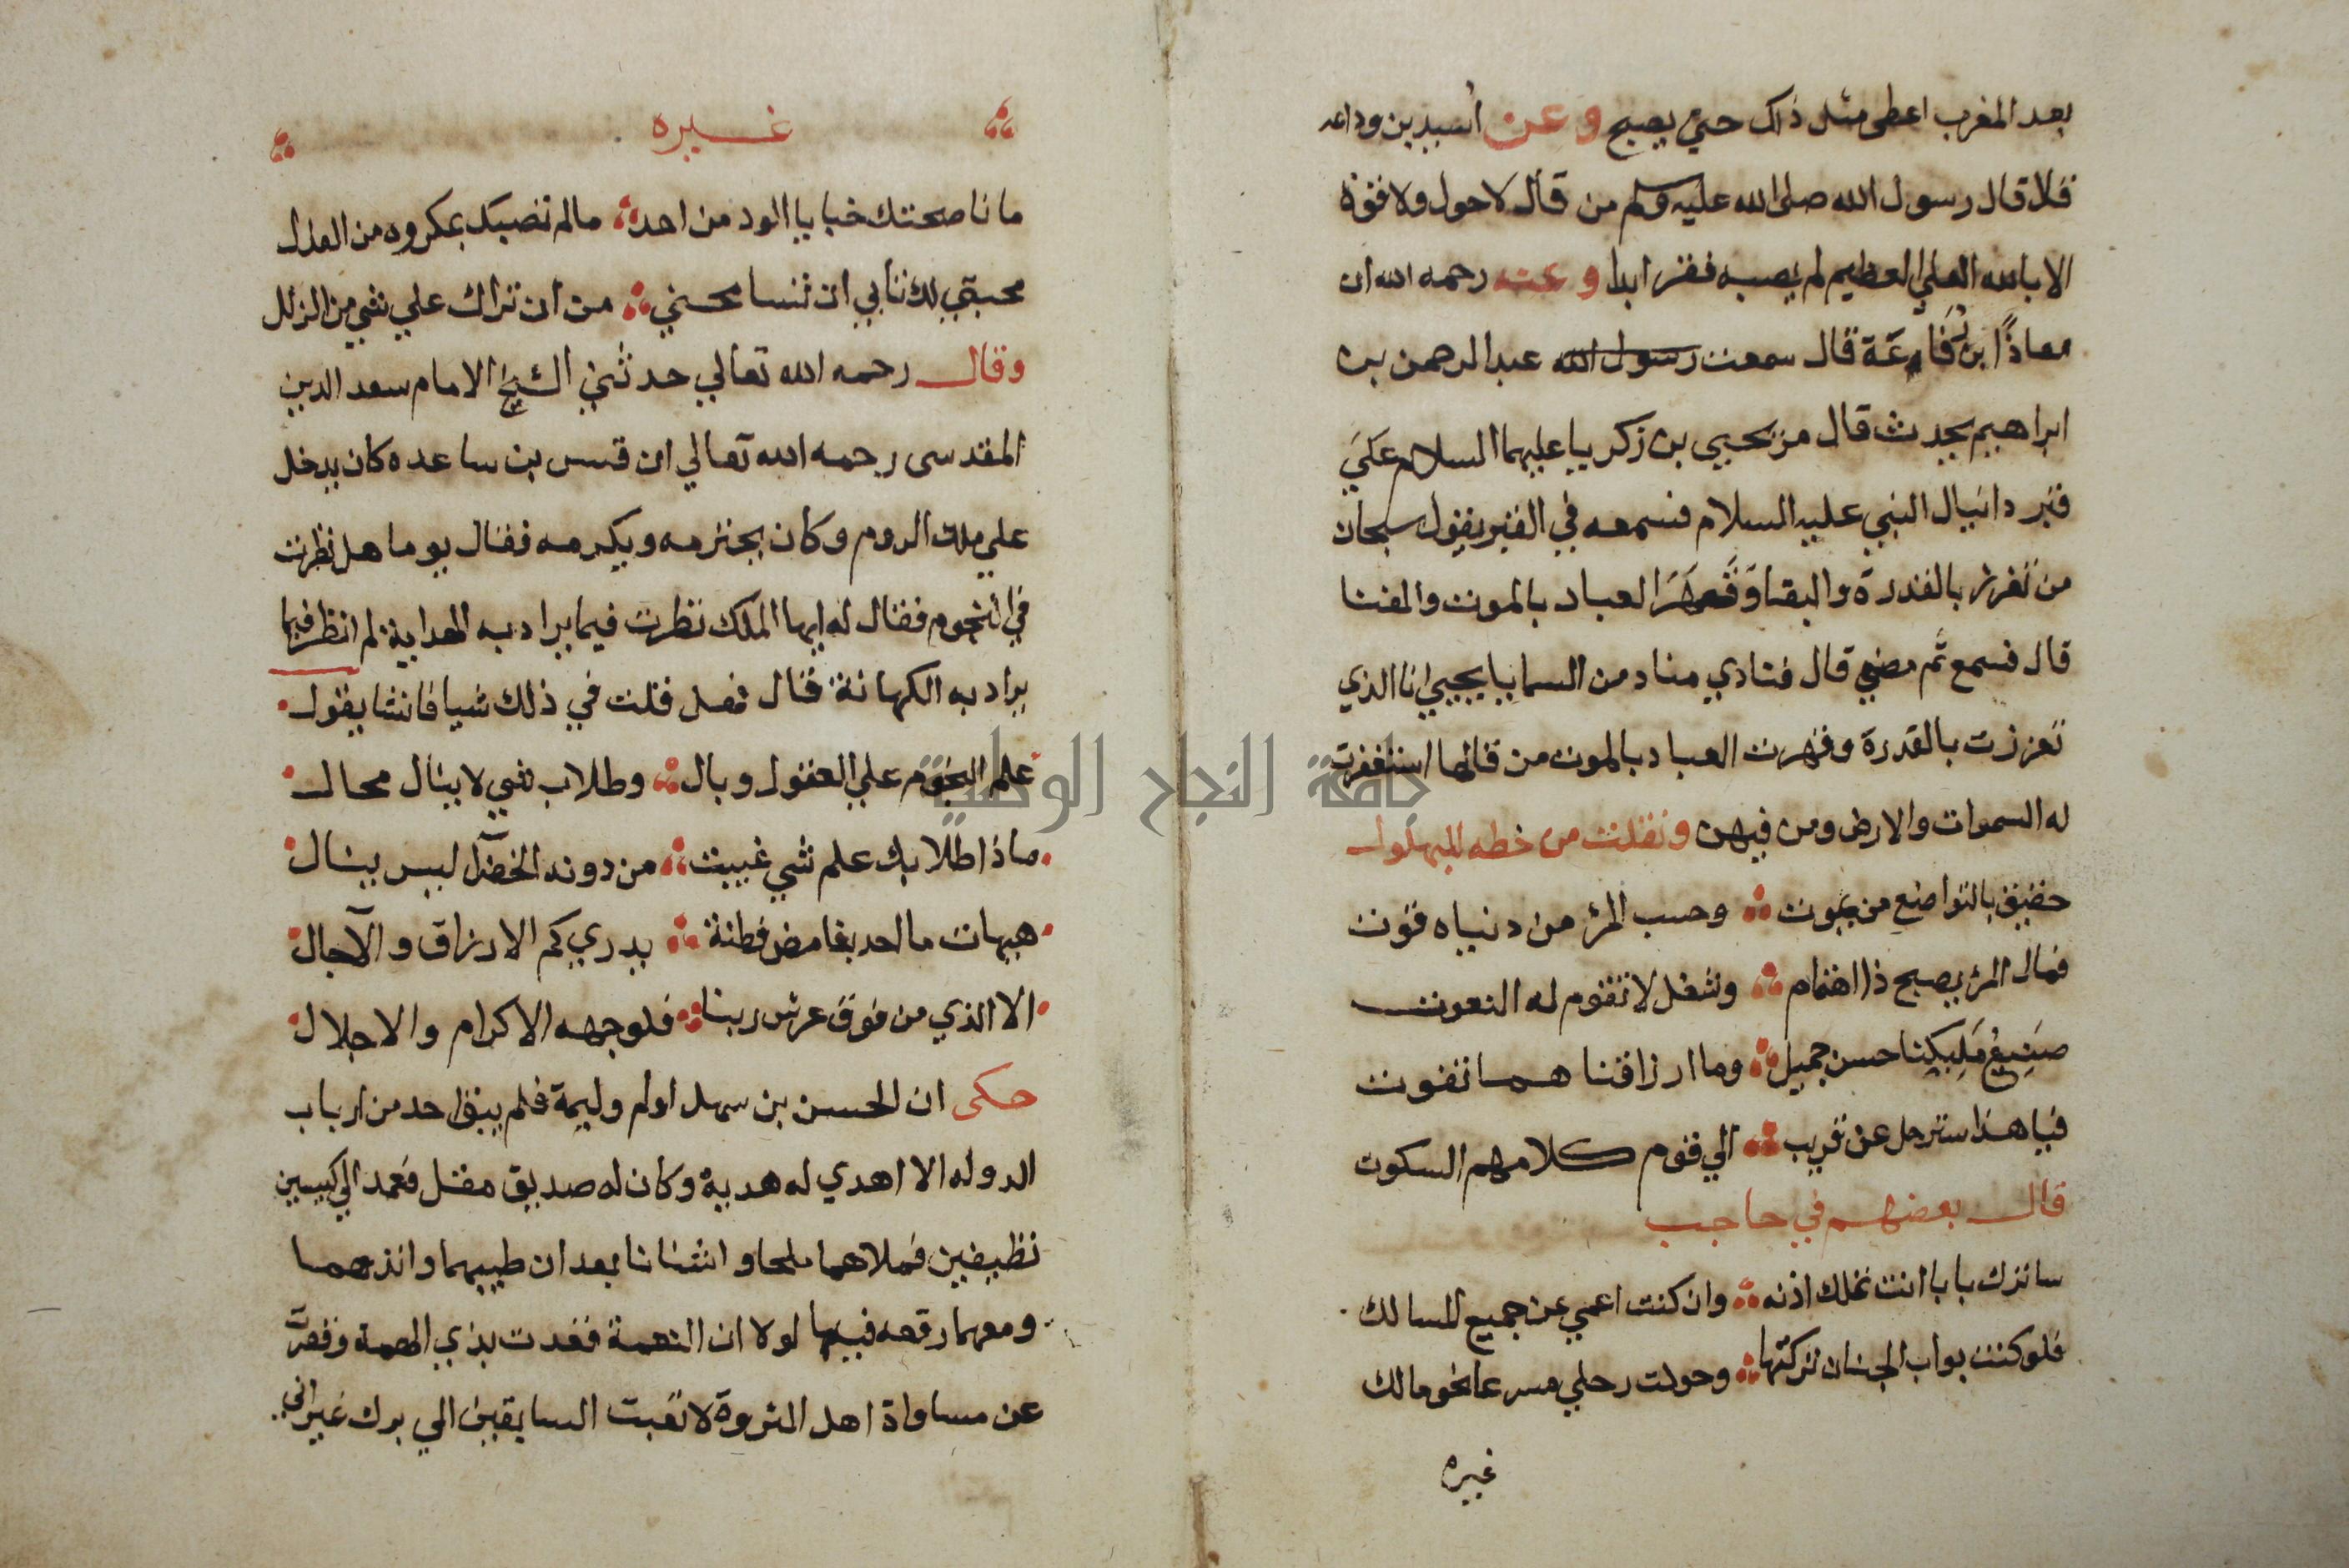 بعد المغرب اعطى مثل ذلك حتي يصبح وعن أسيد بن وداعه
فلا قال رسول الله صلى الله عليه وسلم من قال لا حول ولا قوة
الا بالله العلي العظيم لم يصبه فقر ابدا وعنه رحمه الله ان
معاذًا ابن رُفَاعَة قال سمعت رسول الله عبد الرحمن بن
ابراهيم يحدث قال مر يحيي بن زكريا عليهما السلام علىَ
قبر دانيال النبي عليه السلام فسمعه في القبر يقول سبحان
من تعزز بالقدرة والبقا وَقَهَرَ العباد بالموت والفنا
قال فسمع ثم مضي قال فنادي مناد من السما يا يحيي انا الذي
تعززت بالقدرة وقهرت العباد بالموت من قالها استغفرت
له السموات والارض ومن فيهن ونقلت من خطه للبهلول
حقيق بالتواضع من يموت وحسب المرء من دنياه قوت
فمال المرء يصبح ذا اهتمام وشغل لا تقوم له النعوت
صَنِيعُ مَلِيكِنا حسن جميل وما ارزاقنا هما تفوت
فيا هذا سترحل عن قريب الي قوم كلامهم السكوت
قال بعضهم في حاجب
ساترك بابا انت تملك اذنه وان كنت اعمي عن جميع المسالك
فلو كنت بواب الجنان تركتها وحولت رحلي مسرعا نحو مالك
غيره
غيره
ما ناصحتك خبايا الود من احد مالم تصبك بمكروه من العذل
محبتي لك تابي ان تسامحني من ان تراك علي شي من الزلل
وقال رحمه الله تعالي حدثني الشيخ الامام سعد الدين
المقدسى رحمه الله تعالي ان قسس بن ساعده كان يدخل
علي ملك الروم وكان يحترمه ويكرمه فقال يوما هل نظرت
في النجوم فقال له ايها الملك نظرت فيما يراد به الهداية لم انظر فيما
يراد به الكهانة قال فهل قلت في ذلك شيا فانشا يقول
علم النجوم علي العقول وبال وطلاب شي لا ينال محال
ماذا طلابك علم شي غيبت من دونه الخضرا ليس ينال
هيهات ما احد بغامض فطنة يدري كم الارزاق والآجال
الا الذي من فوق عرش ربنا فلوجهه الاكرام والاجلال
حكى ان الحسن بن سهل اولم وليمة فلم يبق احد من ارباب
الدوله الا اهدي له هدية وكان له صديق مقل فعمد الي كيسين
نظيفين فملاهما ملحا واشنانا بعد ان طيبهما وانذهما
ومعهما رقعه فيها لولا ان النعمة قعدت بذي الهمة وقصرَّت
عن مساواة اهل الثروة لاتعبت السابقين الي برك غير اني
جامعة النجاح الوطنية